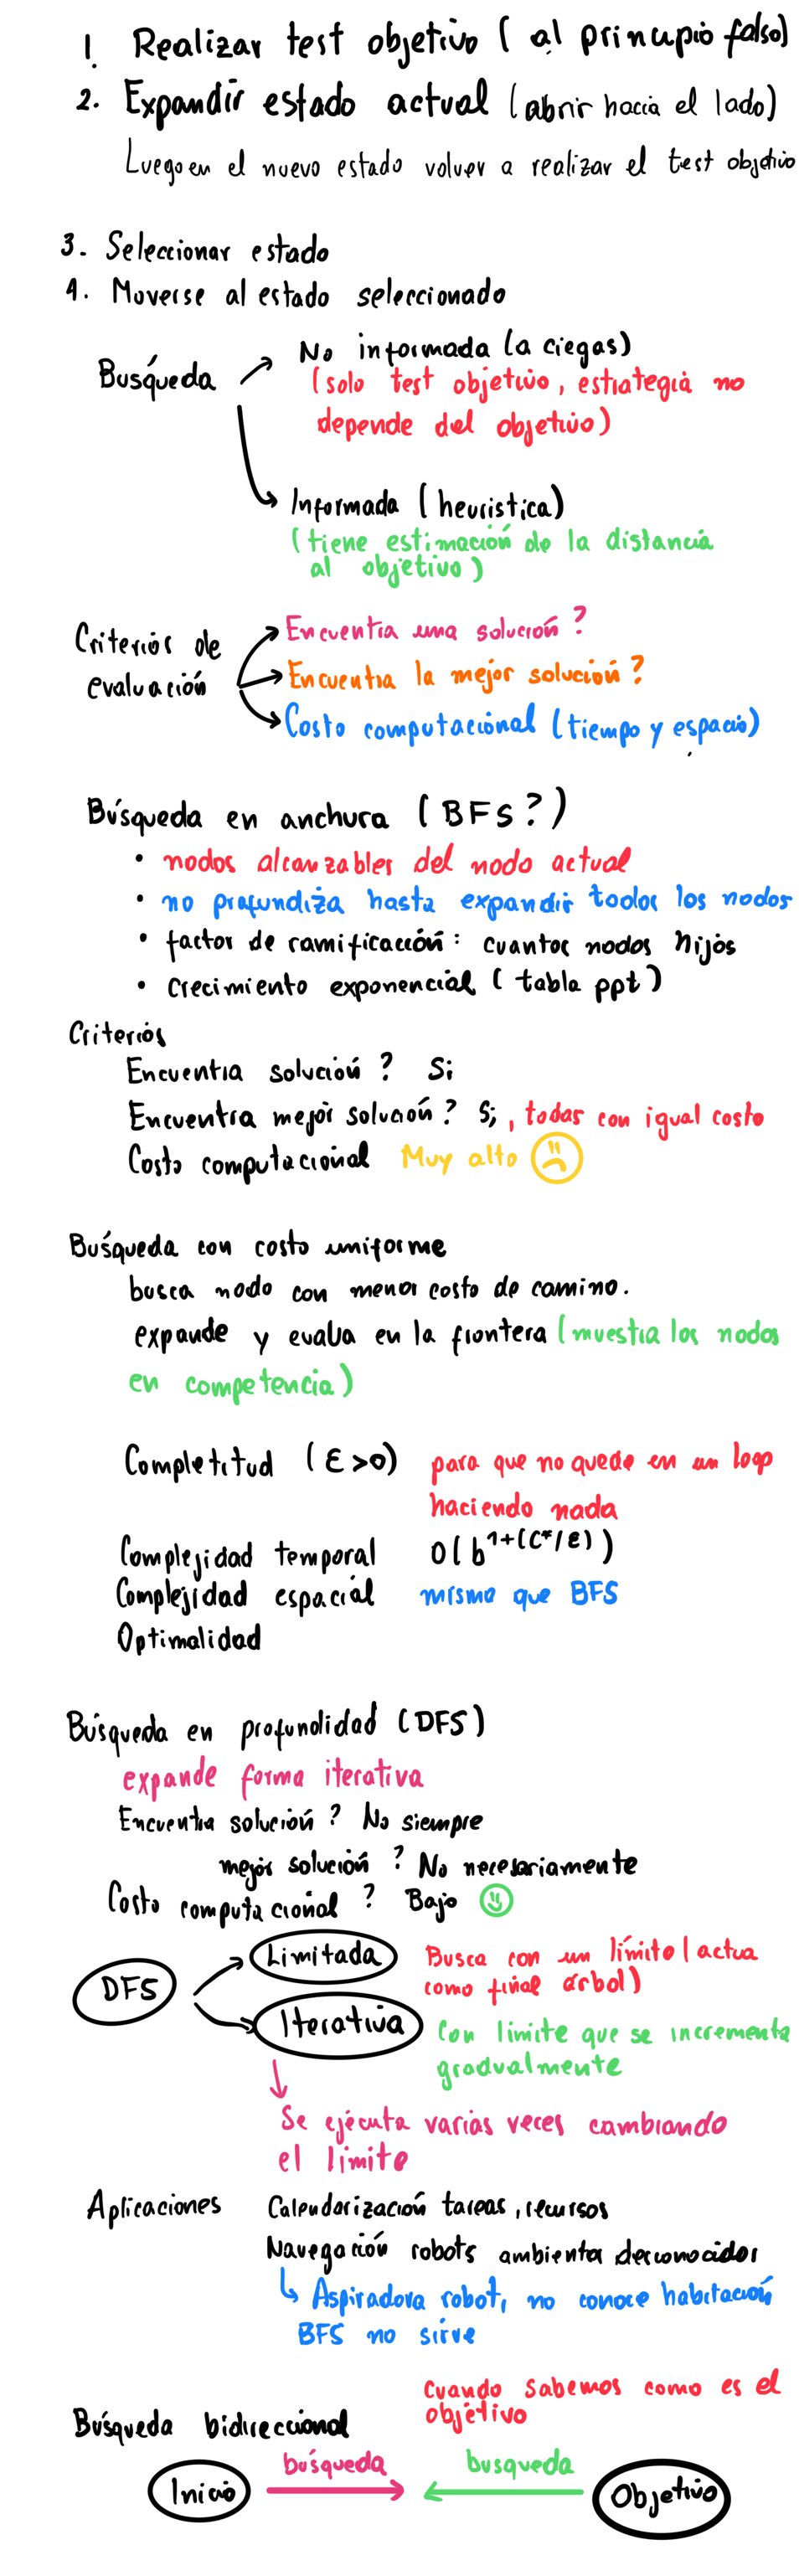 1. Realizar test objetivo ( al principio falso)
2. Expandir estado actual (abrir hacia el lado)
Luego en el nuevo estado volver a realizar el test objetivo
3. Seleccionar estado
4. Moverse al estado seleccionado
Búsqueda
No informada (a ciegas)
(solo test objetivo, estrategia no
depende del objetivo)
Informada (heuristica)
(tiene estimación de la distancia
al objetivo)
Criterios de
evaluación
Encuentra una solución?
Encuentra la mejor solución?
Costo computacional (tiempo y espacio)
Búsqueda en anchura (BFS?)
• nodos alcanzables del nodo actual
• no profundiza hasta expandir todos los nodos
• factor de ramificación: cuantos nodos hijos
• crecimiento exponencial ( tabla ppt )
Criterios
Encuentra solución? Si
Encuentra mejor solución? Si, todas con igual costo
Costo computacional Muy alto
Búsqueda con costo uniforme
busca nodo con menor costo de camino.
expande y evalua en la frontera (muestra los nodos
en competencia)
Completitud (ε>0) para que no quede en un loop
haciendo nada
Complejidad temporal O(b^1+(C*/ε))
Complejidad espacial mismo que BFS
Optimalidad
Búsqueda en profundidad (DFS)
expande forma iterativa
Encuentra solución? No siempre
mejor solución? No necesariamente
Costo computacional? Bajo
DFS
Limitada Busca con un límite (actua
como final arbol)
Iterativa Con limite que se incrementa
gradualmente
Se ejecuta varias veces cambiando
el limite
Aplicaciones Calendarización tareas, recursos
Navegación robots ambientes desconocidos
Aspiradora robot, no conoce habitación
BFS no sirve
Cuando sabemos como es el
objetivo
Búsqueda bidireccional
búsqueda busqueda
Inicio Objetivo